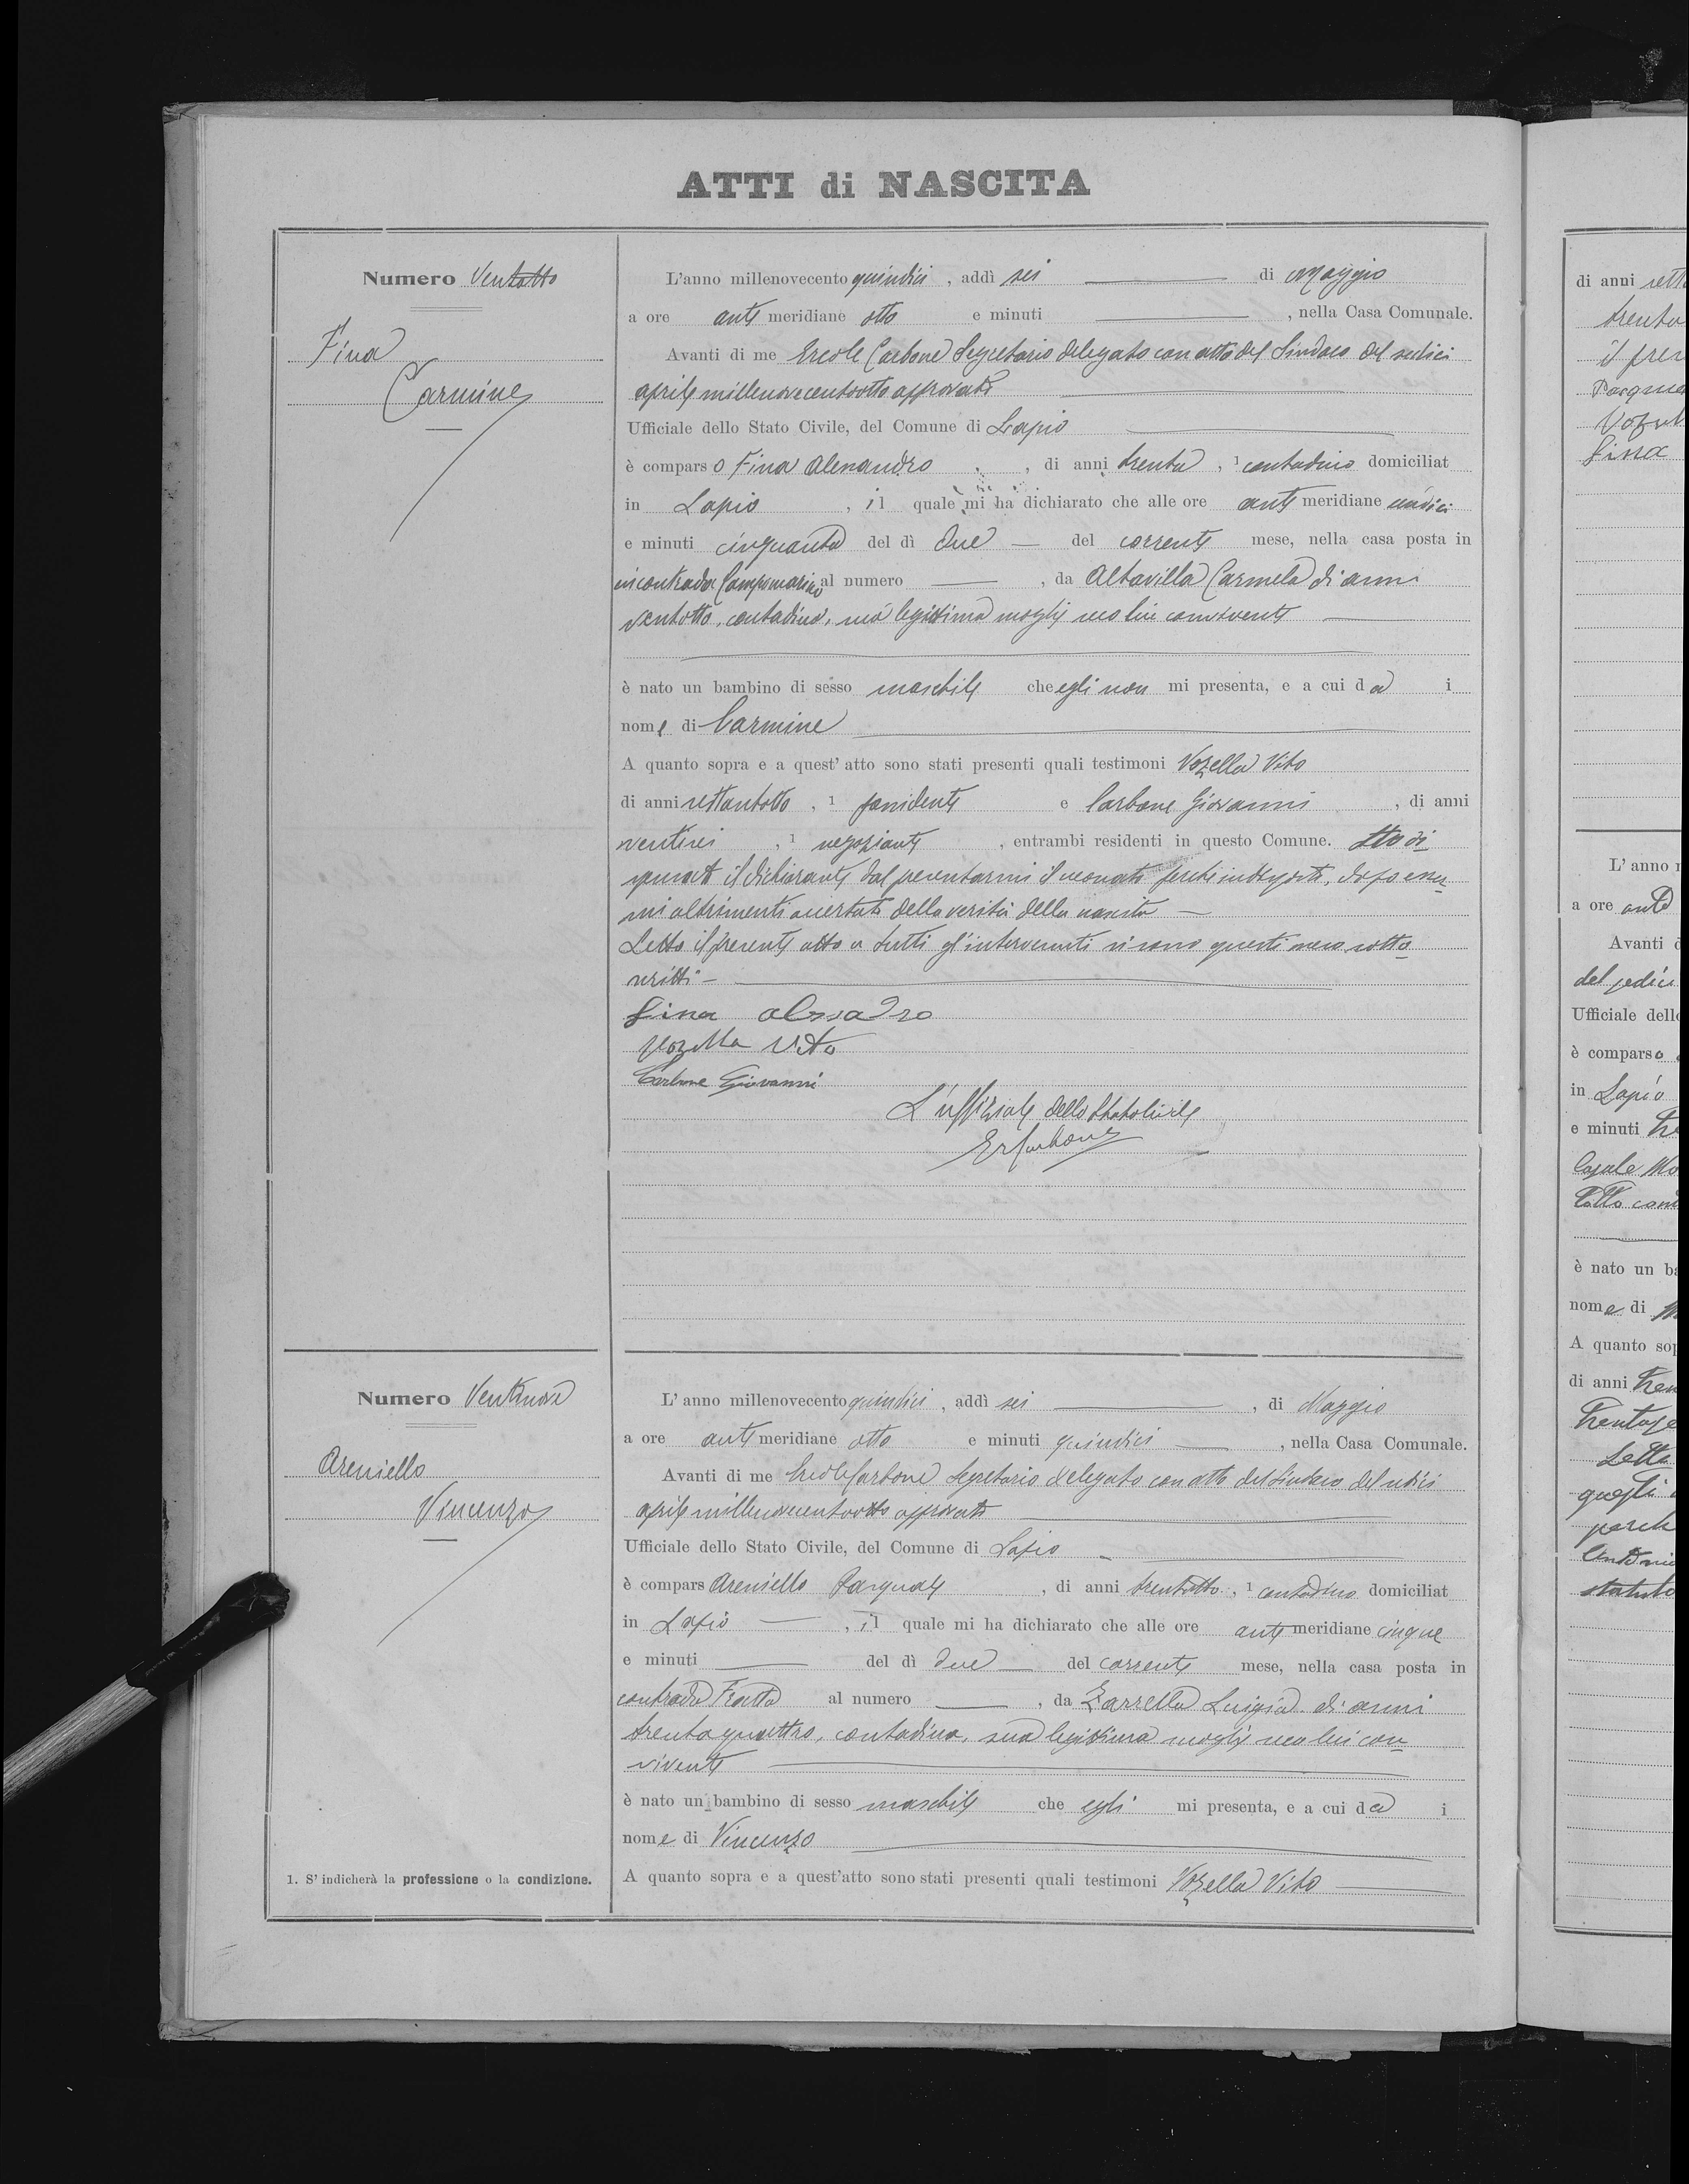 ATTI di NASCITA
Numero Ventotto
Fina
Carmine
L'anno millenovecento quindici, addì sei di Maggio
a ore ante meridiane otto e minuti , nella Casa Comunale.
Avanti di me Ercole Carbone Segretario delegato con atto del Sindaco del sedici
aprile millenovecentootto approvato
Ufficiale dello Stato Civile, del Comune di Lapio
è comparso Fina Alessandro , di anni trenta, 1 contadino domiciliat
in Lapio , il quale mi ha dichiarato che alle ore ante meridiane undici
e minuti cinquanta del dì due del corrente mese, nella casa posta in
in contrada Campomarino al numero , da Altavilla Carmela di anni
ventotto, contadina, sua legittima moglie seco lui convivente
è nato un bambino di sesso maschile che egli non mi presenta, e a cui dà i
nome di Carmine
A quanto sopra e a quest'atto sono stati presenti quali testimoni Vozella Vito
di anni settantotto, 1 possidente e Carbone Giovanni , di anni
ventisei , 1 negoziante , entrambi residenti in questo Comune. Ho di
spensato il dichiarante dal presentarmi il neonato perchè indisposto, dopo esser
mi altrimenti accertato della verità della nascita
Letto il presente atto a tutti gl'intervenuti si sono questi meco sotto
scritti
Fina
Vozella Vito
Carbone Giovanni
L'uffiziale dello Stato Civile
Er Carbone
Numero Ventinove
Areniello
Vincenzo
L'anno millenovecento quindici, addì sei , di Maggio
a ore ante meridiane otto e minuti quindici , nella Casa Comunale.
Avanti di me Ercole Carbone Segretario delegato con atto del Sindaco del sedici
aprile millenovecentootto approvato
Ufficiale dello Stato Civile, del Comune di Lapio
è compars Areniello Pasquale , di anni trentotto, 1 contadino domiciliat
in Lapio , il quale mi ha dichiarato che alle ore ante meridiane cinque
e minuti del dì due del corrente mese, nella casa posta in
contrada Fratta al numero , da Zarrella Luigia di anni
trentaquattro, contadina, sua legittima moglie seco lui con
vivente
è nato un bambino di sesso maschile che egli mi presenta, e a cui dà i
nome di Vincenzo
A quanto sopra e a quest'atto sono stati presenti quali testimoni Vozella Vito
1. S'indicherà la professione o la condizione.
di anni
trenta
il
L'anno
a ore ante
Avanti
del sedici
Ufficiale
è comparso
in Lapio
e minuti
Casale
è nato un
nome di
A quanto
di anni
Letto
questi